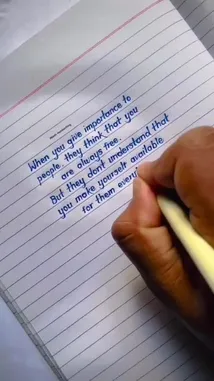 When you give importance to
people they think that you
are always free.
But they dont understand that
you make yourself available
for them every